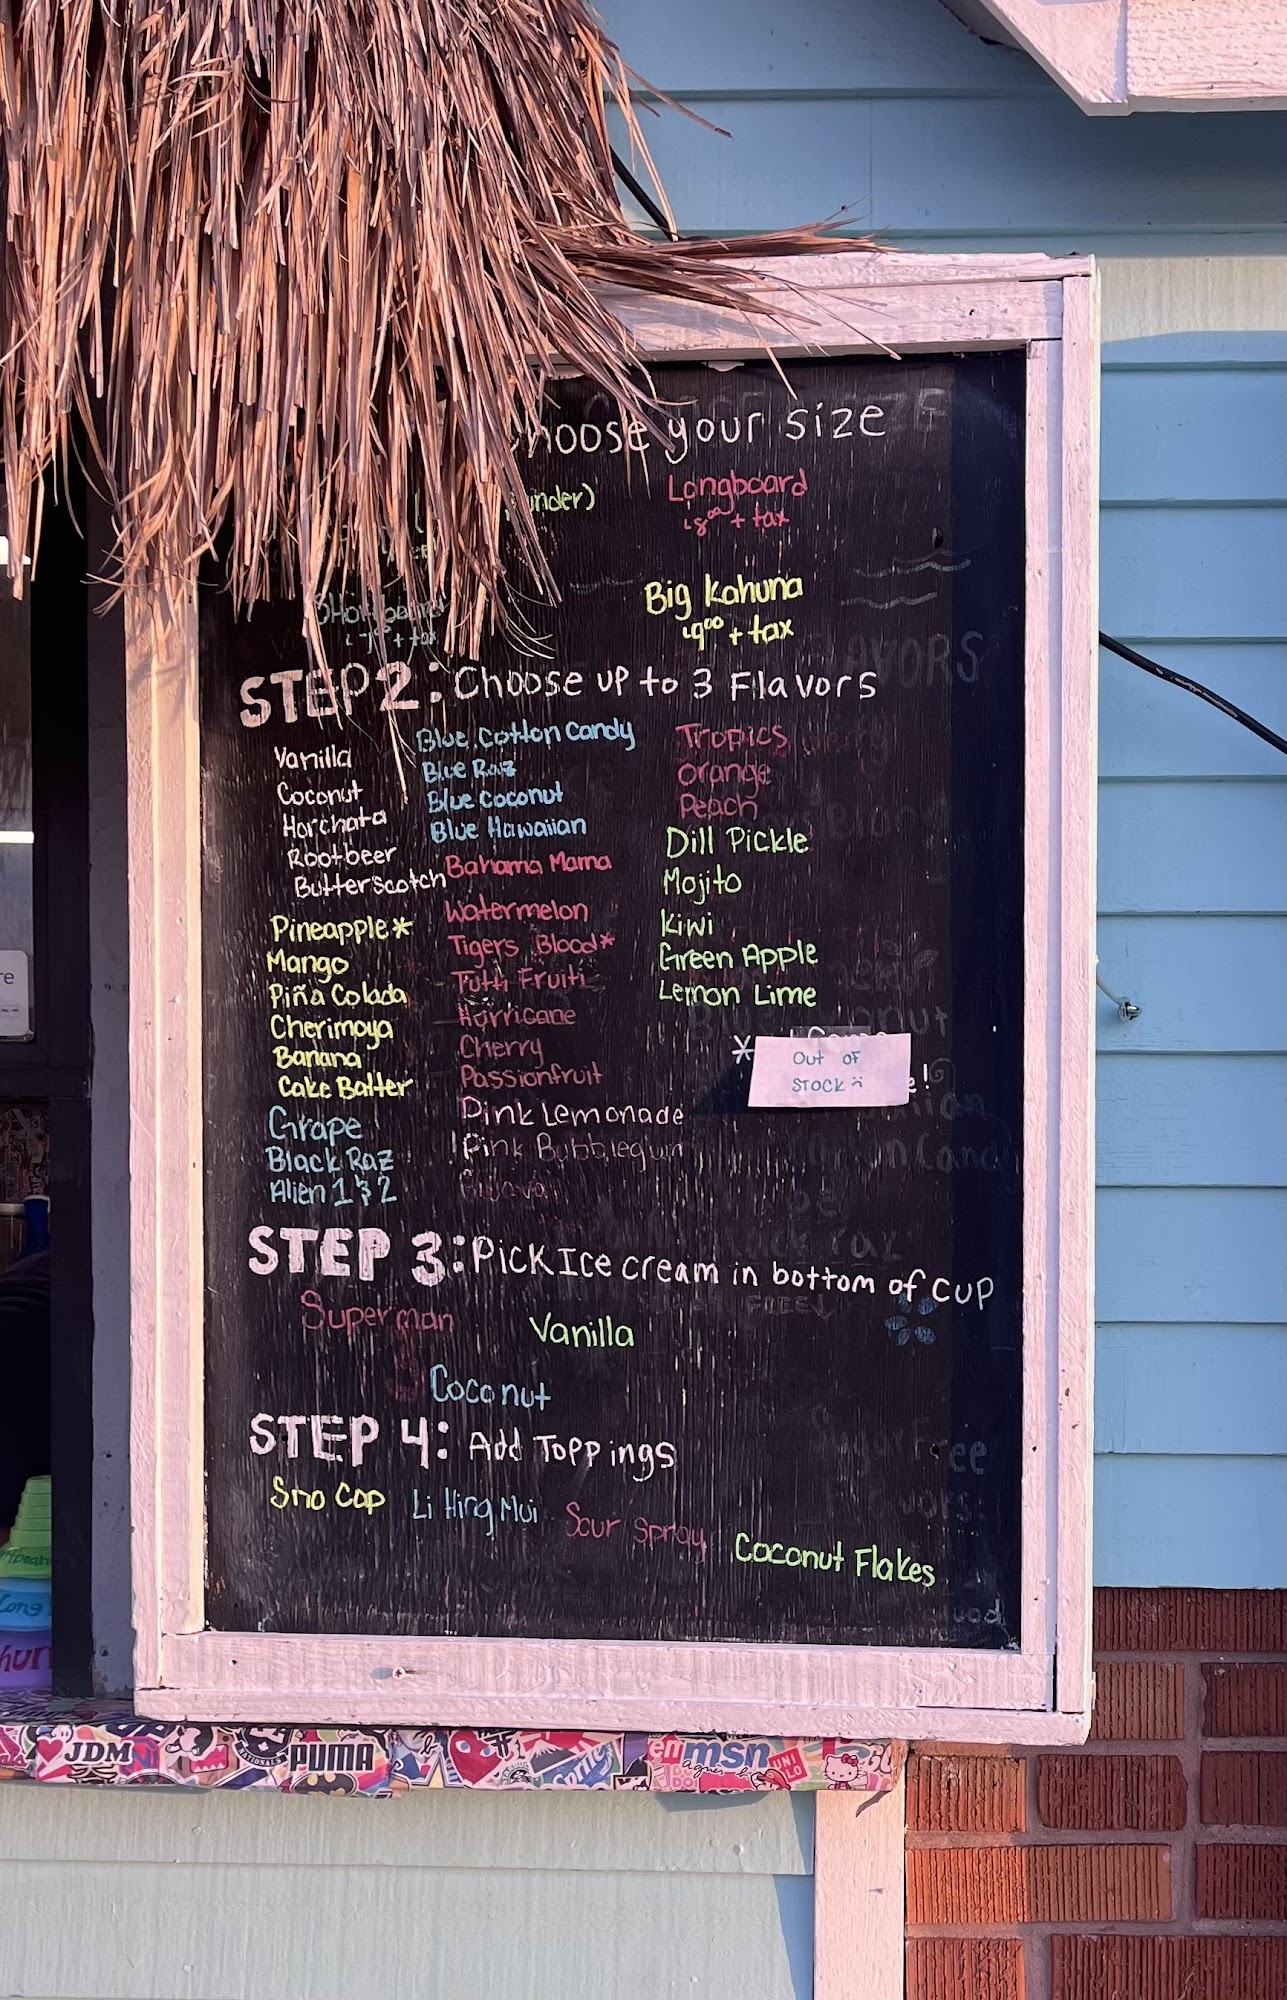 choose your size
Longboard
$8.00 + tax
Big Kahuna
$9.00 + tax
STEP 2: Choose up to 3 Flavors
Vanilla
Coconut
Horchata
Rootbeer
Butterscotch
Pineapple*
Mango
Piña Colada
Cherimoya
Banana
Cake Batter
Grape
Black Raz
Alien 1 & 2
Blue Cotton Candy
Blue Raz
Blue Coconut
Blue Hawaiian
Bahama Mama
Watermelon
Tigers Blood*
Tutti Fruiti
Hurricane
Cherry
Passionfruit
Pink Lemonade
Pink Bubblegum
Guava
Tropics
Orange
Peach
Dill Pickle
Mojito
Kiwi
Green Apple
Lemon Lime
*
OUT OF
STOCK
STEP 3: Pick Ice cream in bottom of cup
Superman
Vanilla
Coconut
STEP 4: Add Toppings
Sno Cap
Li Hing Mui
Sour Spray
Coconut Flakes
JDM
PUMA
msn